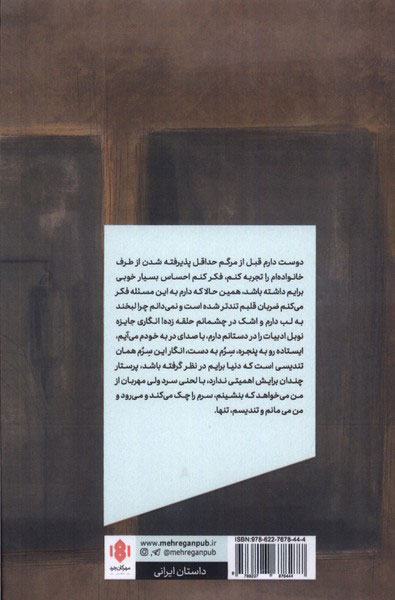 دوست دارم قبل از مرگم حداقل پذیرفته شدن از طرف
خانواده‌ام را تجربه کنم، فکر کنم احساس بسیار خوبی
برایم داشته باشد، همین حالا که دارم به این مسئله فکر
می‌کنم ضربان قلبم تندتر شده است و نمی‌دانم چرا لبخند
به لب دارم و اشک در چشمانم حلقه زده! انگاری جایزه
نوبل ادبیات را در دستانم دارم، با صدای در به خودم می‌آیم،
ایستاده رو به پنجره، سِرُم به دست، انگار این سِرُم همان
تندیسی است که دنیا برایم در نظر گرفته باشد، پرستار
چندان برایش اهمیتی ندارد، با لحنی سرد ولی مهربان از
من می‌خواهد که بنشینم، سرم را چک می‌کند و می‌رود و
من می مانم و تندیسم، تنها.
ISBN: 978-622-7678-44-4
www.mehreganpub.ir
@mehreganpub
داستان ایرانی
مهرگان خرد